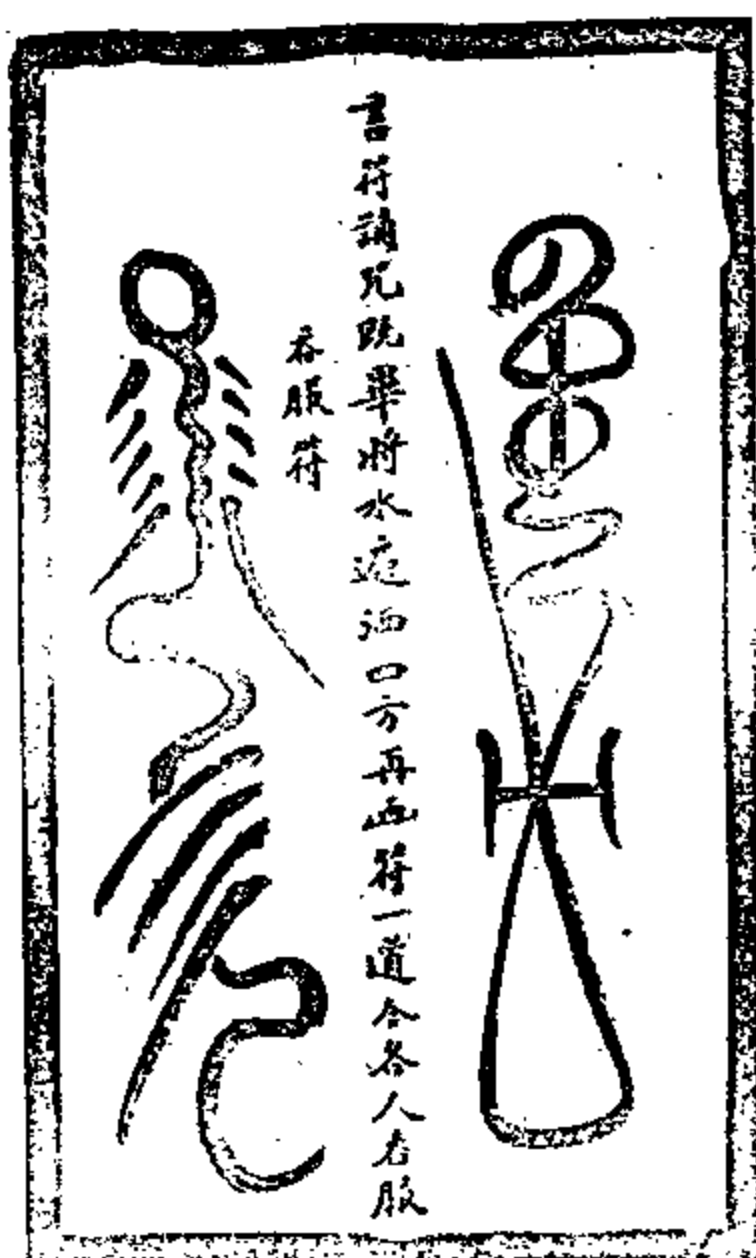 書符誦咒既畢將水遍洒四方再画符一道令各人吞服
吞服符